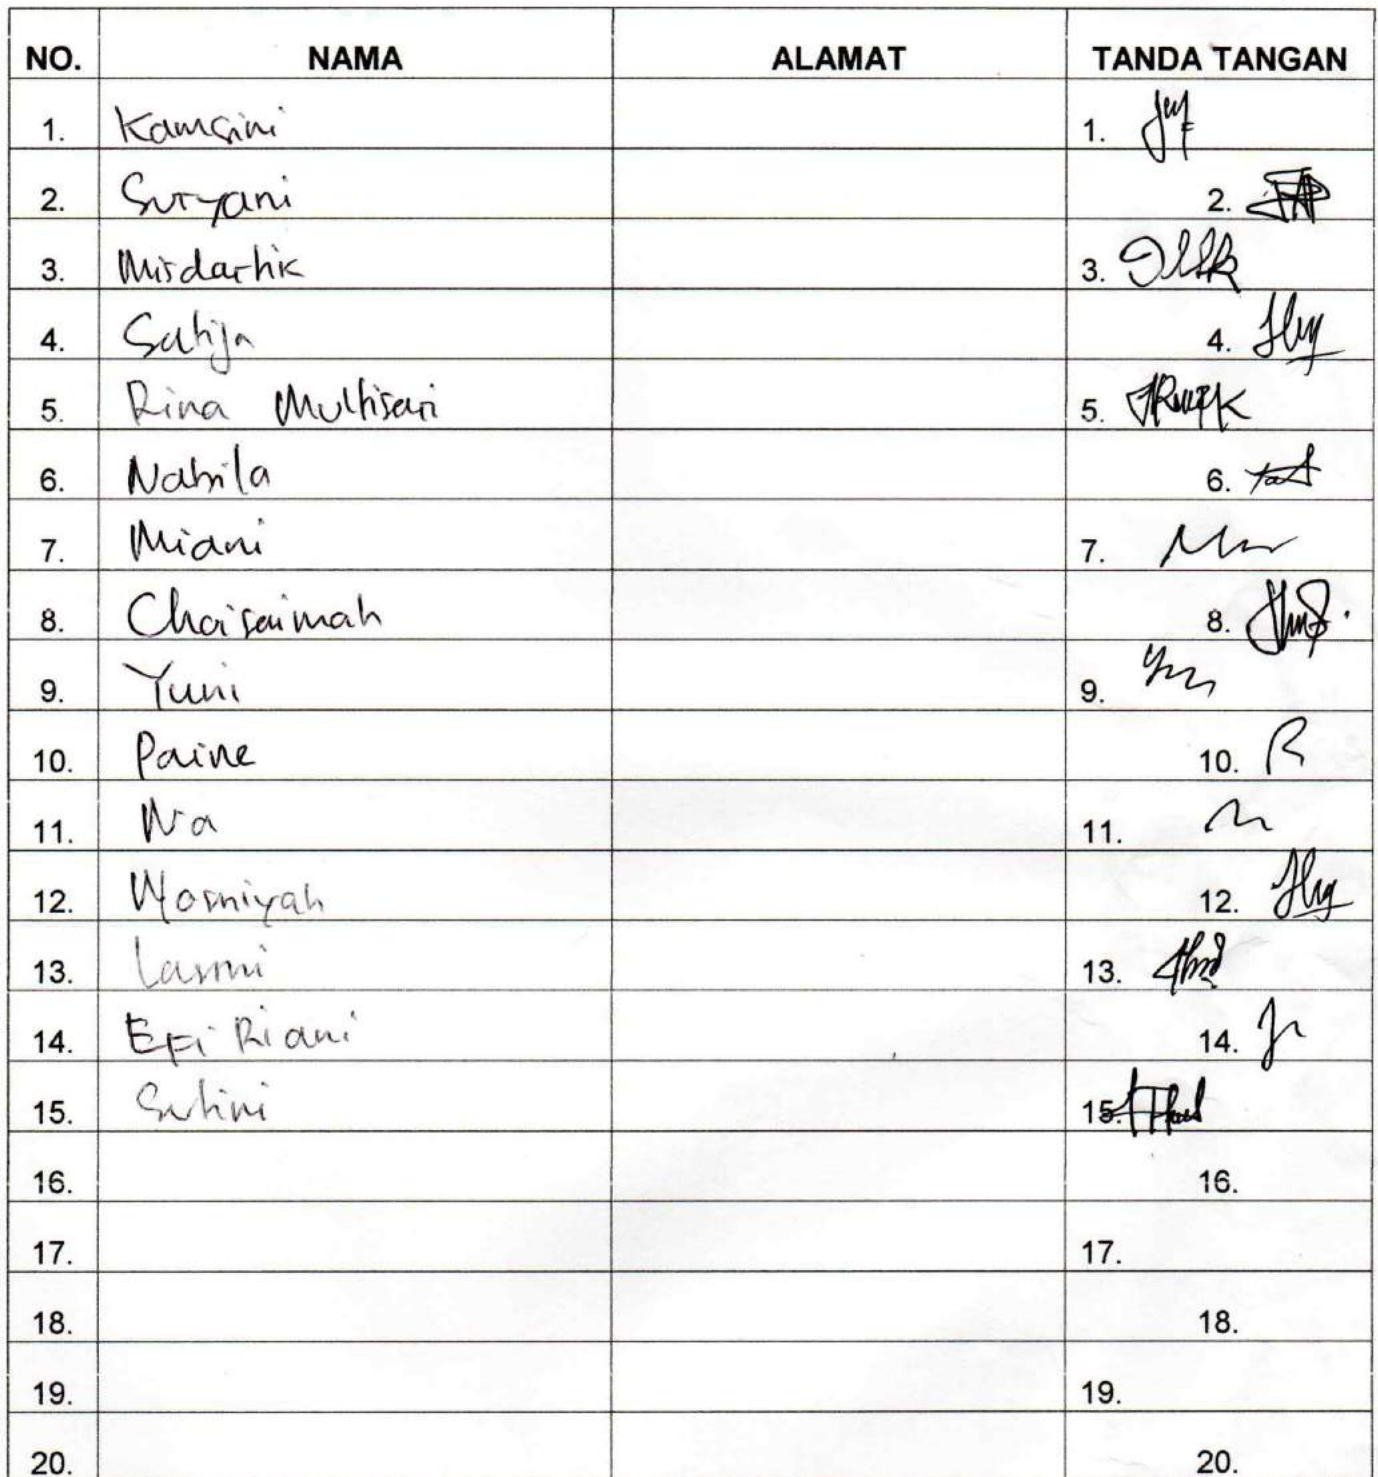 NO. NAMA ALAMAT TANDA TANGAN
1. Kamsini 1.
2. Suryani 2.
3. Misdartik 3.
4. Satija 4.
5. Rina Multisari 5.
6. Nabila 6.
7. Miani 7.
8. Choisaimah 8.
9. Yuni 9.
10. Paine 10.
11. 11.
12. Masniyah 12.
13. Lasmi 13.
14. Epi Riani 14.
15. Sutini 15.
16. 16.
17. 17.
18. 18.
19. 19.
20. 20.